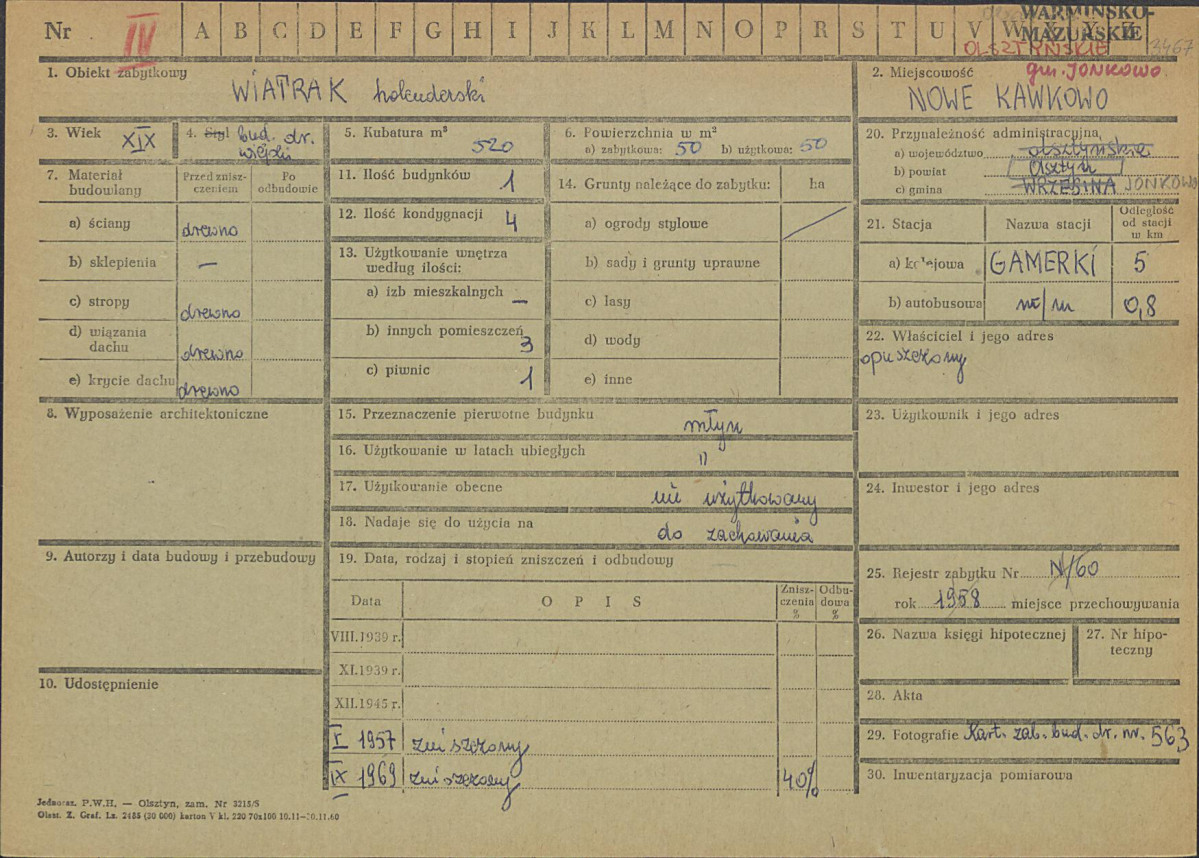 Nr IV A B C D E F G H I J K L M N O P R S T U V W X Y Z
WARMIŃSKO-
MAZURSKIE
OLSZTYŃSKIE 3467
gm. JONKOWO
1. Obiekt zabytkowy
WIATRAK holenderski
2. Miejscowość
NOWE KAWKOWO
3. Wiek XIX
4. Styl bud. dr. wiejski
5. Kubatura m³ 520
6. Powierzchnia w m²
a) zabytkowa: 50 b) użytkowa: 50
7. Materiał budowlany
Przed zniszczeniem
Po odbudowie
a) ściany drewno
b) sklepienia —
c) stropy drewno
d) wiązania dachu drewno
e) krycie dachu drewno
8. Wyposażenie architektoniczne
9. Autorzy i data budowy i przebudowy
10. Udostępnienie
11. Ilość budynków 1
12. Ilość kondygnacji 4
13. Użytkowanie wnętrza według ilości:
a) izb mieszkalnych —
b) innych pomieszczeń 3
c) piwnic 1
14. Grunty należące do zabytku: ha
a) ogrody stylowe
b) sady i grunty uprawne
c) lasy
d) wody
e) inne
15. Przeznaczenie pierwotne budynku młyn
16. Użytkowanie w latach ubiegłych "
17. Użytkowanie obecne nie użytkowany
18. Nadaje się do użycia na do zachowania
19. Data, rodzaj i stopień zniszczeń i odbudowy
Data OPIS Zniszczenia % Odbudowa %
VIII.1939 r.
XI.1939 r.
XII.1945 r.
I 1957 zniszczony
IX 1969 zniszczony 40%
20. Przynależność administracyjna
a) województwo olsztyńskie
b) powiat Olsztyn
c) gmina WRZESINA JONKOWO
21. Stacja Nazwa stacji Odległość od stacji w km
a) kolejowa GAMERKI 5
b) autobusowa m/m 0,8
22. Właściciel i jego adres
opuszczony
23. Użytkownik i jego adres
24. Inwestor i jego adres
25. Rejestr zabytku Nr N/60
rok 1958 miejsce przechowywania
26. Nazwa księgi hipotecznej
27. Nr hipoteczny
28. Akta
29. Fotografie Kart. zab. bud. dr. nr. 563
30. Inwentaryzacja pomiarowa
Jednoraz. P.W.H. — Olsztyn, zam. Nr 3215/S
Olszt. Z. Graf. Lz. 2485 (30 000) karton V kl. 220 70x100 10.11—30.11.60